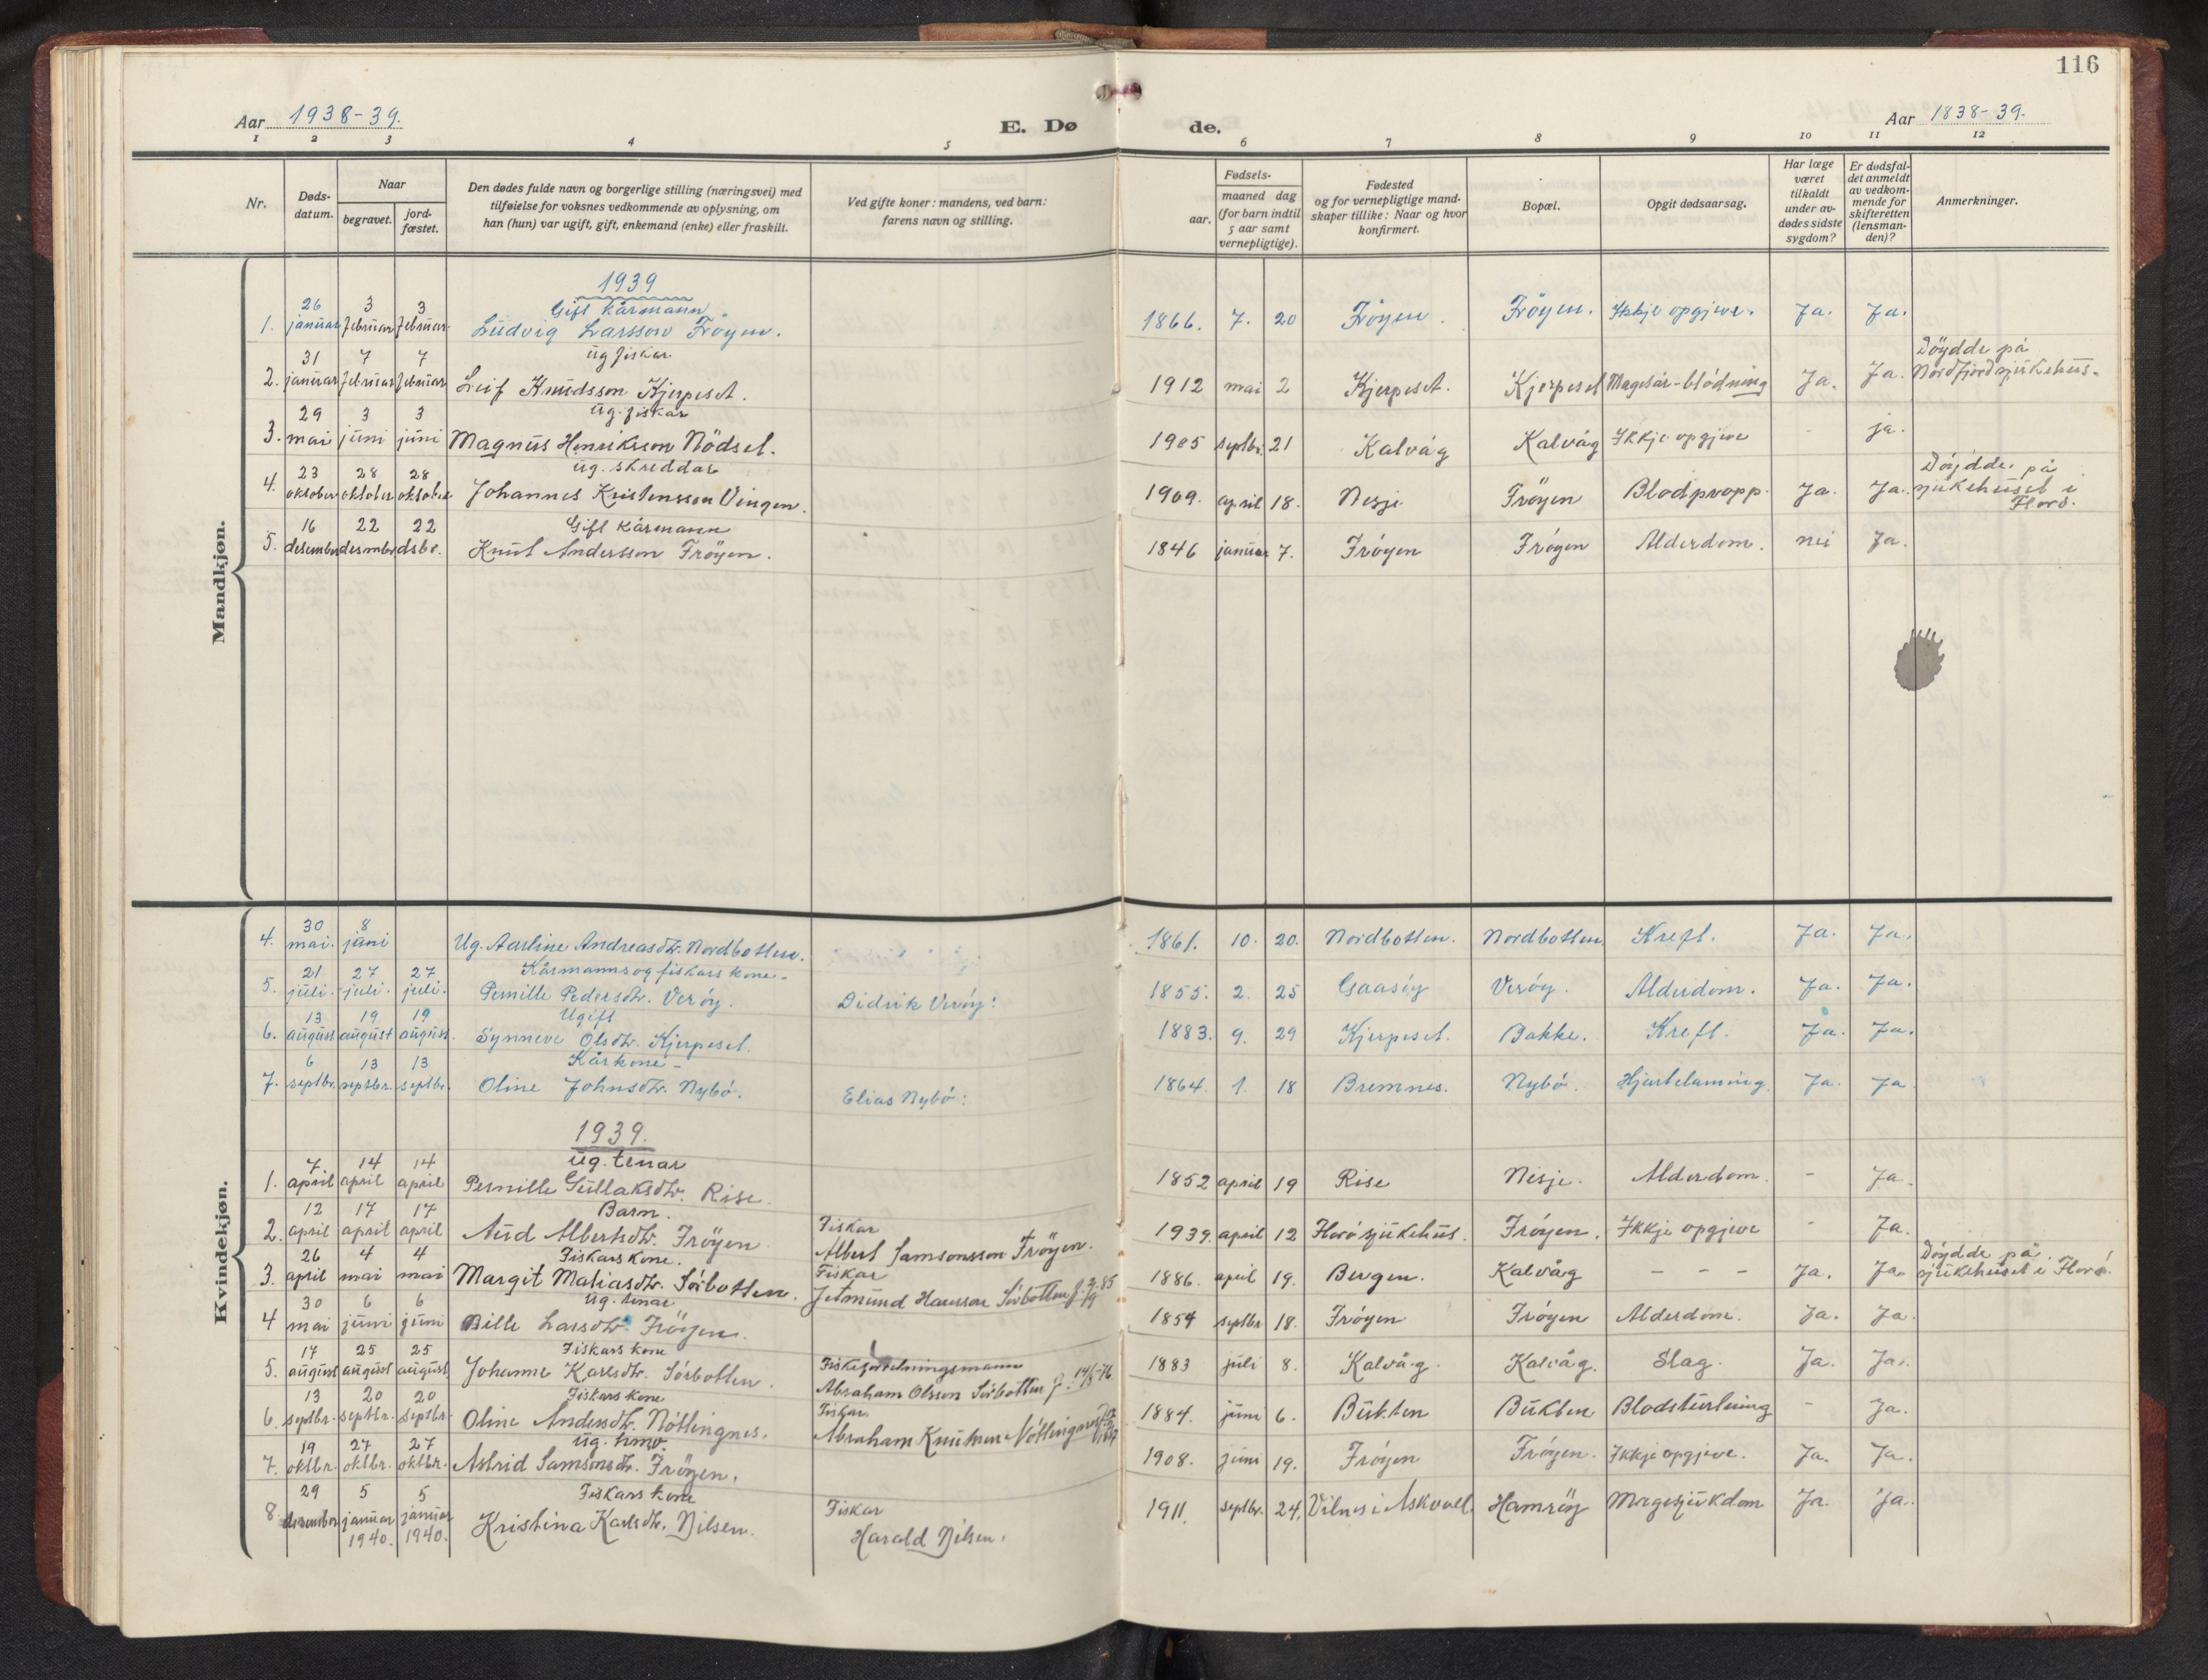 116
Aar 1938-39.
E. Dø
de.
Aar 1838-39.
1 2 3 4 5 6 7 8 9 10 11 12
Nr.
Døds-
datum.
Naar
begravet.
jord-
fæstet.
Den dødes fulde navn og borgerlige stilling (næringsvei) med
tilføielse for voksnes vedkommende av oplysning, om
han (hun) var ugift, gift, enkemand (enke) eller fraskilt.
Ved gifte koner: mandens, ved barn:
farens navn og stilling.
Fødsels-
aar.
maaned dag
(for barn indtil
5 aar samt
vernepligtige).
Fødested
og for vernepligtige mand-
skaper tillike: Naar og hvor
konfirmert.
Bopæl.
Opgit dødsaarsag.
Har læge
været
tilkaldt
under av-
dødes sidste
sygdom?
Er dødsfal-
det anmeldt
av vedkom-
mende for
skifteretten
(lensman-
den)?
Anmerkninger.
Mandkjøn.
1939
26 3 3 Gift kårmann
1. januar februar februar Ludvig Larsson Frøyen. 1866. 7. 20 Frøyen. Frøyen. Ikkje opgjeve. Ja. Ja.
31 7 7 ug fiskar Døydde på
2. januar februar februar Leif Knudsson Kjerpeset. 1912 mai 2 Kjerpeset. Kjerpeset Magesår-blødning Ja. Ja. Nordfjordsjukehus.
29 3 3 ug. fiskar
3. mai juni juni Magnus Henriksson Nødset. 1905 septbr. 21 Kalvåg Kalvåg Ikkje opgjeve - ja.
23 28 28 ug. skreddar Døydde på
4. oktober oktober oktober Johannes Kristensson Vingen. 1909. april 18. Nesje Frøyen Blodpropp. Ja. Ja. sjukehuset i
Florø.
16 22 22 Gift kårmann
5. desember desember dsbr. Knut Andersson Frøyen. 1846 januar 7. Frøyen Frøyen Alderdom. nei Ja.
Kvindekjøn.
30 8
4. mai. juni Ug. Aarline Andreasdtr. Nordbotten. 1861. 10. 20. Nordbotten. Nordbotten Kreft. Ja. Ja.
21 27 27 Kårmanns og fiskars kone-
5. juli. juli. juli. Pernille Pedersdtr. Verøy. Didrik Verøy: 1855. 2. 25 Gaasøy Verøy. Alderdom. Ja. Ja.
13 19 19 Ugift
6. august august august. Synneve Olsdtr. Kjerpeset. 1883. 9. 29 Kjerpeset. Bakke. Kreft. Ja. Ja.
6 13 13 Kårkone-
7. septbr. septbr. septbr. Oline Johnsdtr. Nybø. Elias Nybø: 1864. 1. 18 Bremnes. Nybø. Hjartelaming. Ja. Ja
1939.
7 14 14 ug. tenar
1. april april april Pernille Gullaksdtr. Rise. 1852 april 19 Rise Nesje. Alderdom. - Ja.
12 17 17 Barn.
2. april april april Aud Albertsdtr. Frøyen Fiskar
Albert Samsonsson Frøyen. 1939. april 12 Florø sjukehus. Frøyen. Ikkje opgjeve - Ja.
26 4 4 Fiskars kone. Døydde på
3. april mai mai Margit Matiasdtr. Sørbotten. Fiskar
Jetmund Hansson Sørbotten 1886. april 19. Bergen. Kalvåg - - - Ja. Ja. sjukehuset i Florø.
30 6 6 ug. tenar
4 mai juni juni Bille Larsdtr. Frøyen. 1854 septbr 18. Frøyen Frøyen Alderdom. Ja. Ja
17 25 25 Fiskars kone
5. august august august Johanne Karlsdtr. Sørbotten. Fiskeforretningsmann
Abraham Olsson Sørbotten f. 14/5-76 1883 juli 8. Kalvåg. Kalvåg. Slag. Ja. Ja.
13 20 20 Fiskars kone
6. septbr. septbr. septbr. Oline Andersdtr. Nøttingnes. Fiskar
Abraham Knutson Nøttingnes 1884. juni 6. Bukten Bukten Blodstyrtning - Ja.
19 27 27 ug. tenar
7. oktbr. oktbr. oktbr. Astrid Samsonsdtr. Frøyen. 1908. juni 19. Frøyen Frøyen. Ikkje opgjeve. Ja. Ja.
29 5 5 Fiskars kone
8. desember januar januar Kristina Karlsdtr. Nilsen. Fiskar
1940. 1940. Harald Nilsen. 1911. septbr. 24. Vilnes i Askvoll. Hamrøy Magesjukdom Ja. Ja.